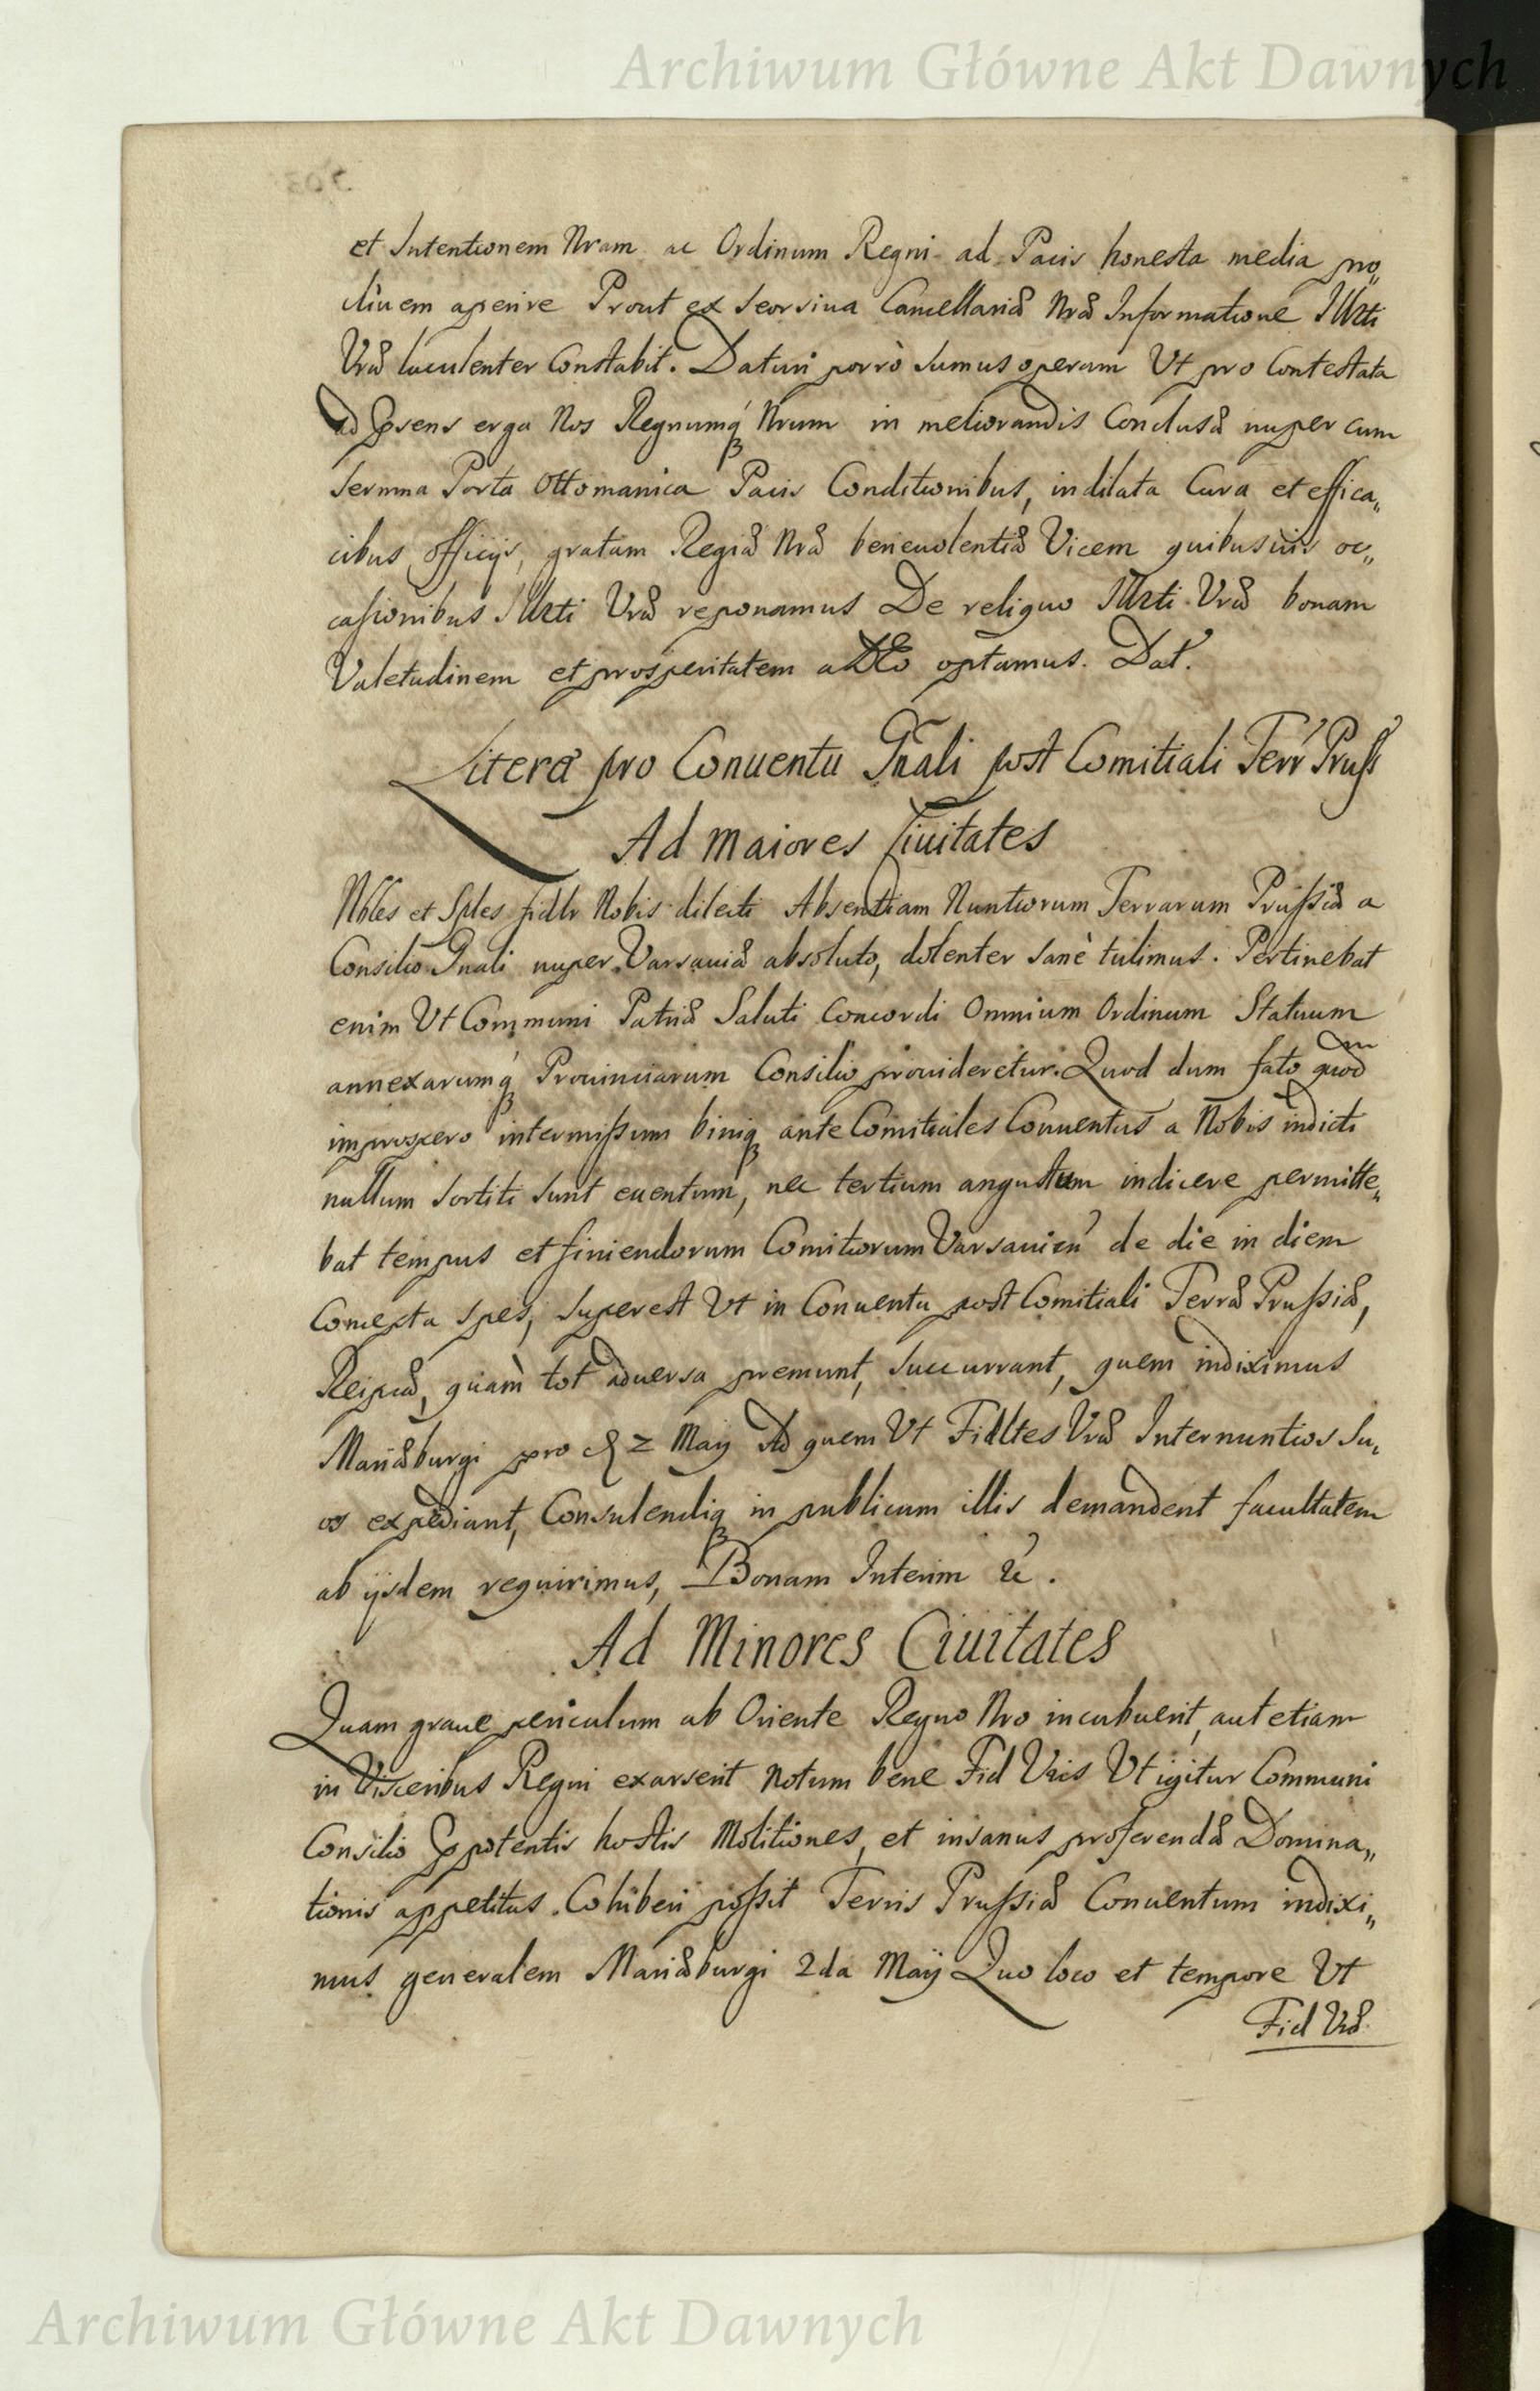 Archiwum Główne Akt Dawnych
et Intentionem Nram ac Ordinum Regni ad Pacis honesta media pro„
cliuem aperire Prout ex seorsiua Cancellariæ Nræ Informatione Illrti
Vræ luculenter Constabit. Daturi porrò sumus operam Ut pro Contestata
ad Præsens erga Nos Regnumq́ Nrum in meliorandis Conclusæ nuper cum
Sermna Porta Ottomanica Pacis Conditionibus, indilata Cura et effica„
cibus officijs, gratam Regiæ Nræ beneuolentiæ Vicem quibusuis oc„
casionibus Illrti Vræ reponamus De reliquo Illrti Vræ bonam
Valetudinem et prosperitatem a DEo optamus. Dat.
Literæ pro Conuentu Gñali post Comitiali Terr Pruss
Ad maiores Ciuitates
Nbles et Sples fidlr Nobis dilecti Absentiam Nuntiorum Terrarum Prussiæ a
Consilio Gnali nuper Varsauiæ absoluto, dolenter sanè tulimus. Pertinebat
enim Ut Communi Patriæ Saluti Concordi Omnium Ordinum Statuum
annexarumq́ Prouinciarum Consilio prouideretur. Quod dum fato quodm
improspero intermissum biniq ante Comitiales Conuentus a Nobis indicti
nullum sortiti sunt euentum, nec tertium angustum indicere permitte„
bat tempus et finiendorum Comitiorum Varsauien de die in diem
Concepta spes, superest Ut in Conuentu post Comitiali Terræ Prussiæ,
Reipcæ, quam̀ tot aduersa premunt, succurrant, quem indiximus
Mariæburgi pro 2 Maij Ad quem Ut Fidltes Vræ Internuntios su„
os expediant, Consulendiq in publicum illis demandent facultatem
ab ijsdem requirimus, Bonam Interim &c.
Ad Minores Ciuitates
Quam graue periculum ab Oriente Regno Nro incubuerit, aut etiam
in Visceribus Regni exarserit Notum bene Fid Vris Ut igitur Communi
Consilio Præpotentis hostis Molitiones, et insanus proferendæ Domina„
tionis appetitus Cohiberi possit Terris Prussiæ Conuentum indixi„
mus generalem Mariæburgi 2da Maij Quo loco et tempore Ut
Fid Vræ
Archiwum Główne Akt Dawnych